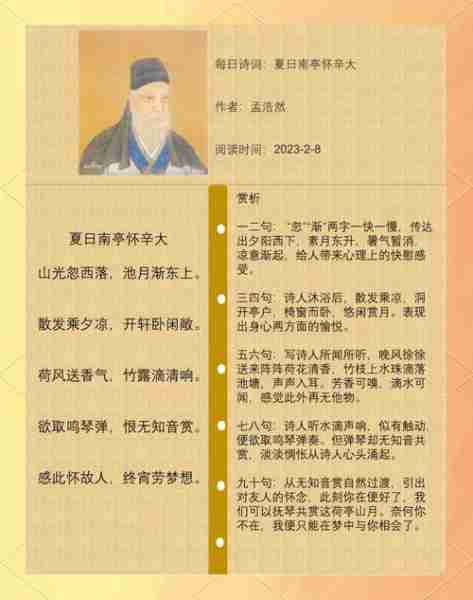 每日诗词：夏日南亭怀辛大
作者：孟浩然
阅读时间：2023-2-8
夏日南亭怀辛大
山光忽西落，池月渐东上。
散发乘夕凉，开轩卧闲敞。
荷风送香气，竹露滴清响。
欲取鸣琴弹，恨无知音赏。
感此怀故人，终宵劳梦想。
赏析
一二句：“忽”“渐”两字一快一慢，传达
出夕阳西下，素月东升，暑气暂消，
凉意渐起，给人带来心理上的快慰感
受。
三四句：诗人沐浴后，散发乘凉，洞
开亭户，椅窗而卧，悠闲赏月。表现
出身心两方面的愉悦。
五六句：写诗人所闻所听，晚风徐徐
送来阵阵荷花清香，竹枝上水珠滴落
池塘，声声入耳。芳香可嗅，滴水可
闻，感觉此外再无他物。
七八句：诗人听水滴声响，似有触动，
便欲取鸣琴弹奏。但弹琴却无知音共
赏，淡淡惆怅从诗人心头涌起。
九十句：从无知音赏自然过渡，引出
对友人的怀念，此刻你在便好了，我
们可以抚琴共赏这荷亭山月。奈何你
不在，我便只能在梦中与你相会了。